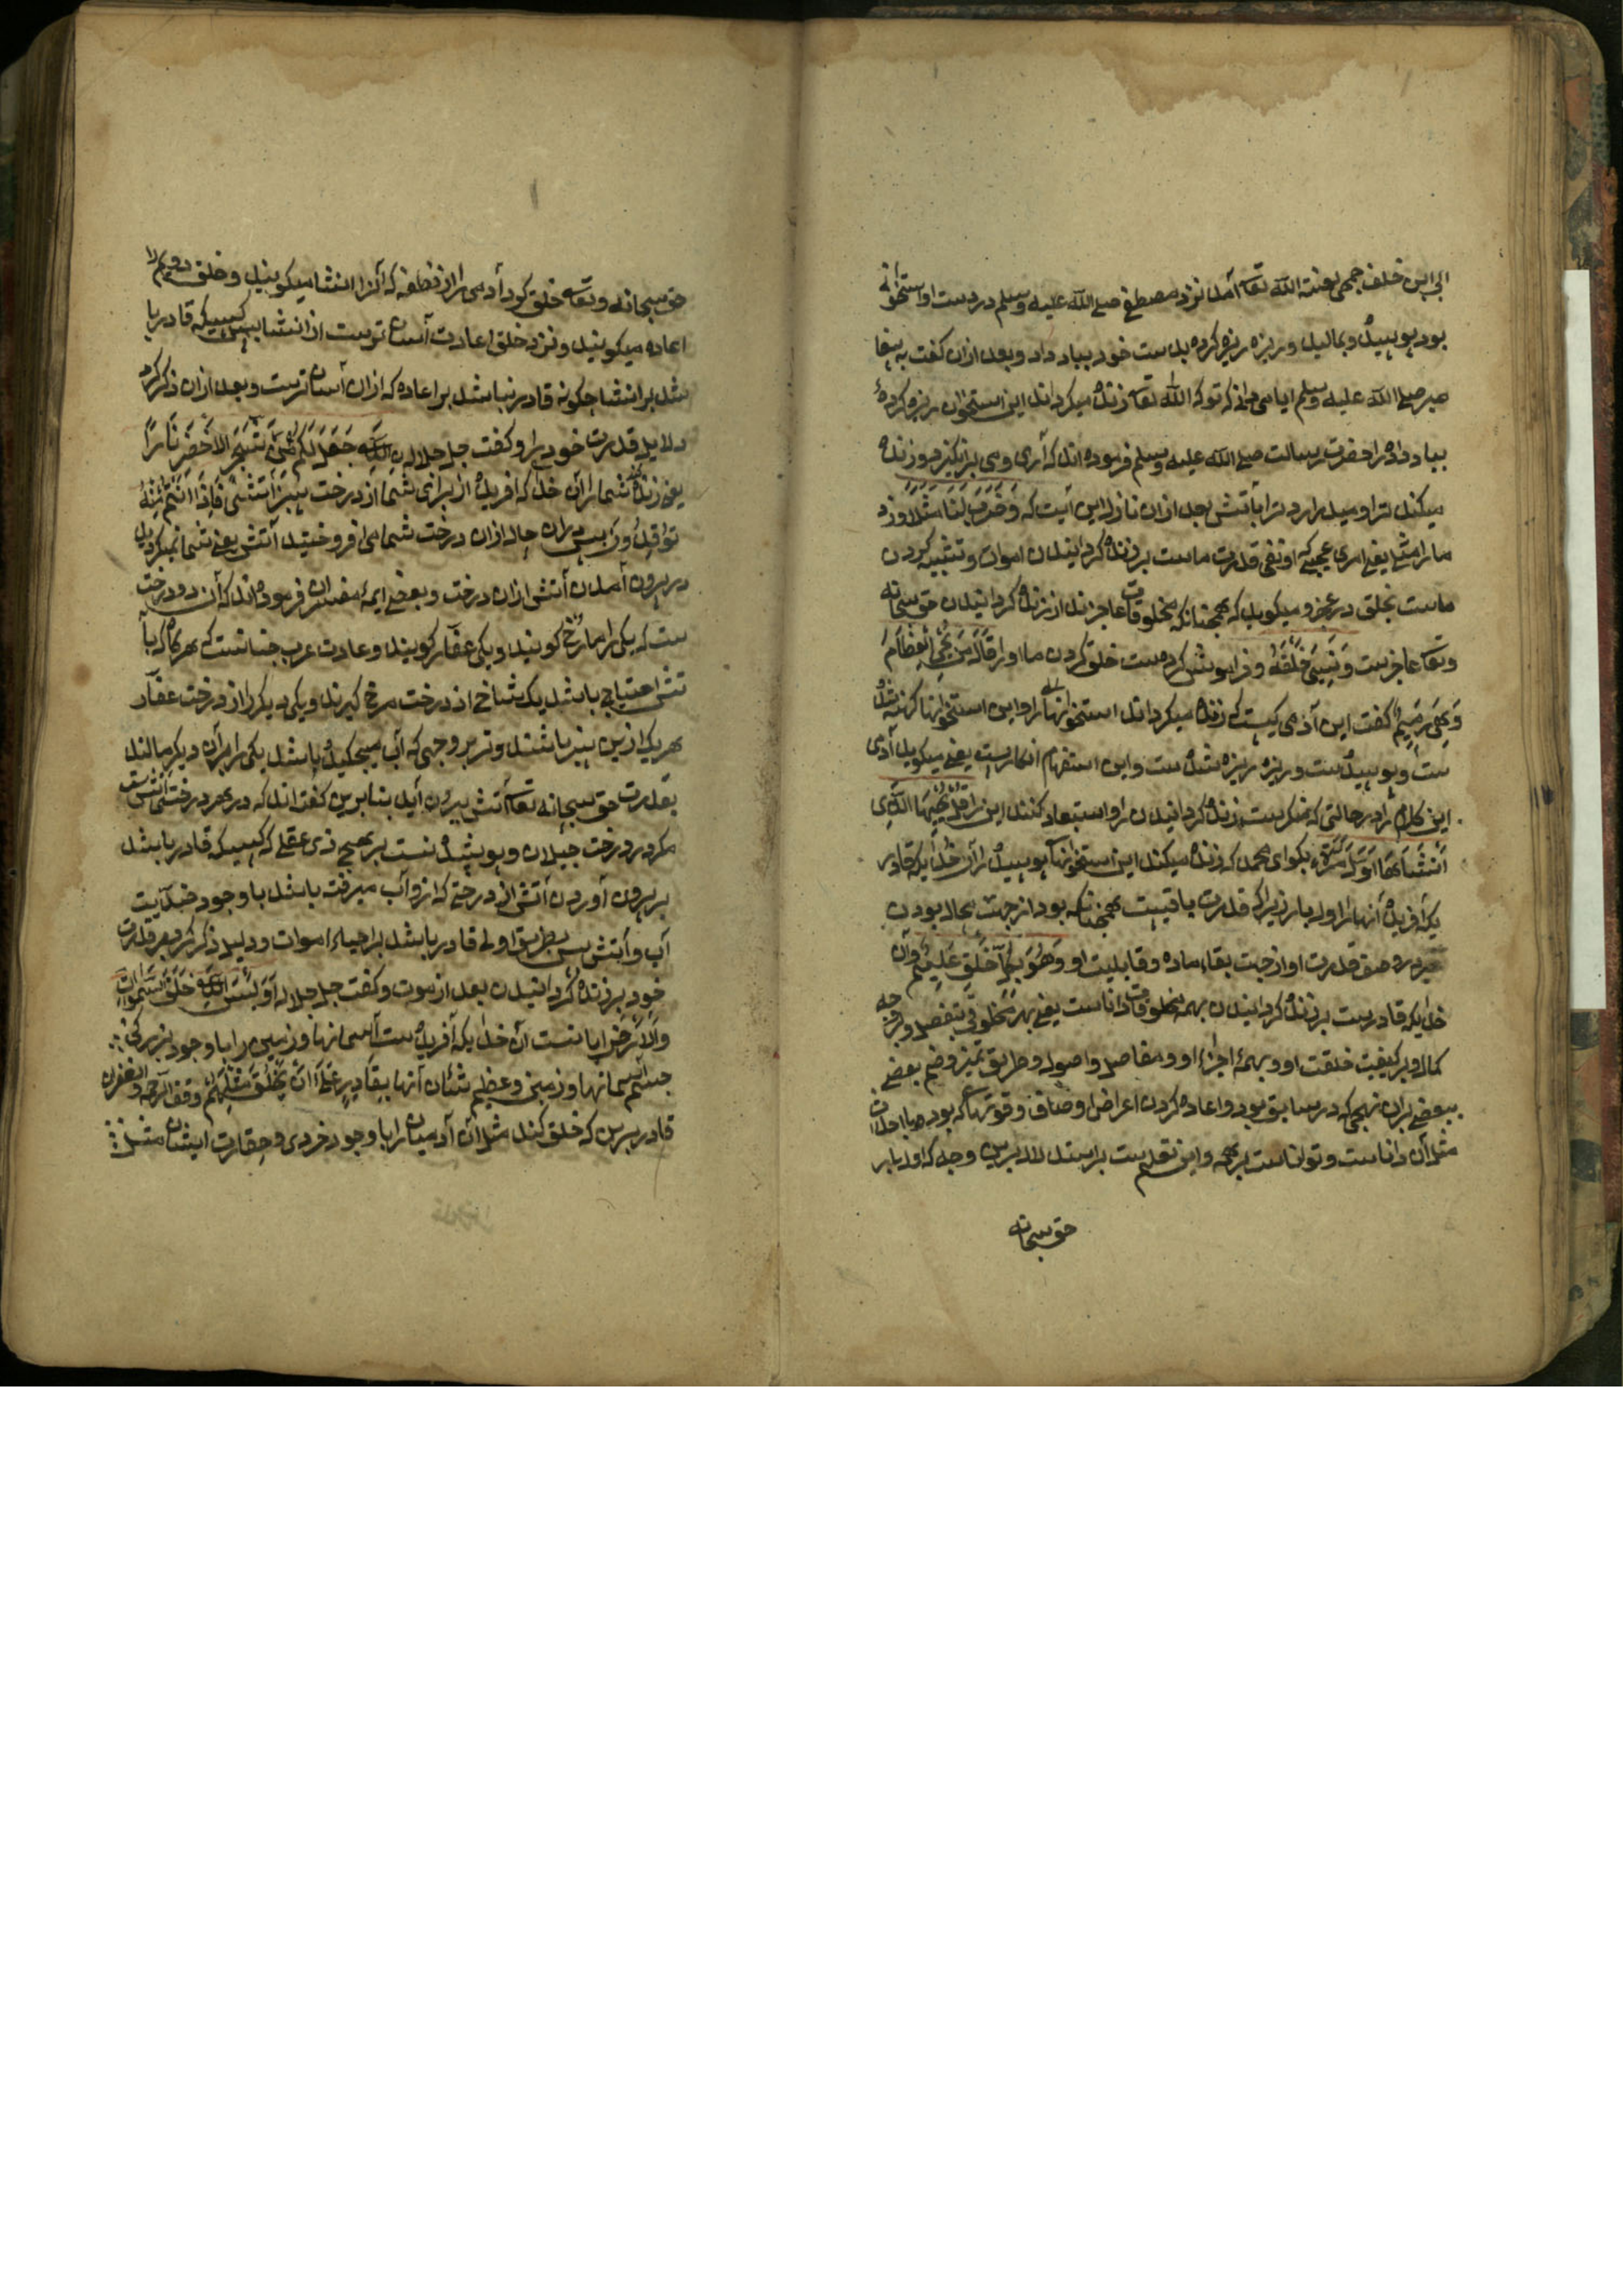 ابی ابن خلف جمحی لعنة الله تعه آمد نزد مصطفی صلے الله علیه وسلم در دست او استخوانی
بود پوسیده و بمالید و ریزه ریزه کرده بدست خود بباد داد و بعد ازان کفت به پیغا
مبر صلے الله علیه وسلم ایا می دانی که تو که الله تعه زنده میکرداند این استخوان ریزه کردهٔ
بباد داده را حضرت رسالت صلے الله علیه وسلم فرموده اند که آری ومی بر انکیزد و زنده
میکند ترا و میدرارد ترا بآتش بعد ازان نازل این آیت که وَضَرَبَ لَنَا مَثَلًا و زد
ما را مثلے یعنے امری عجیبے که او نفی قدرت ماست بر زنده کردانیدن اموات و تشبیه کردن
ماست بخلق در عجز و میکوید که همچنانکه مخلوقات عاجزند از زنده کردانیدن حق سبحانه
وتعه عاجزست وَنَسِیَ خَلْقَهُ و فراموش کرده ست خلق کردن ما او را قَالَ مَنْ یُحْیِ الْعِظَامَ
وَهِیَ رَمِیمٌ کفت این آدمی کیست که زنده میکرداند استخوانهای را و این استخوانها کهنه شده
ست و پوسیده ست و ریزه ریزه شده ست و این استفهام انکاریست یعنے میکوید آدمی
این کلام را در حالتی که منکرست زنده کردانیدن را و استبعاد کنند این را قُلْ یُحْیِیهَا الَّذِی
اَنْشَاَهَا اَوَّلَ مَرَّةٍ بکو ای محمد که زنده میکند این استخوانها پوسیده را آن خدایکه قادر
یکه آفریده آنها را اول بار زیرا که قدرت باقیست همچنانکه بود از جهت محال بودن
تغیر در وصف قدرت او از جهت بقاء ماده و قابلیت او وَهُوَ بِکُلِّ خَلْقٍ عَلِیمٌ و آن
خدایکه قادرست بر زنده کردانیدن بهمه مخلوقات داناست یعنے بهر مخلوقی بتفصیل و بر وجه
کمال و بر کیفیت خلقت او و بهمهٔ اجزاء او و مفاصل و اصول و طریق تمیز و ضم بعضے
ببعضے بران نهجی که در سابق بود و اعاده کردن اعراض و صاف و قوتهای که بود
مثل آن داناست و تواناست بر همه و این تعلیم ست بر استدلال برین وجه که اول بار
حق سبحانه
حق سبحانه وتعه خلق کود آدمی را از نطفه که آنرا انشا میکویند و خلق دویم را
اعاده میکویند و نزد خلق اعادت آسان ترست از انشا پس کسیکه قادر با
شد بر انشا چکونه قادر نباشد بر اعاده که ازان آسان ترست و بعد ازان ذکر کرد
دلایل قدرت خود را و کفت جل جلاله الَّذِی جَعَلَ لَکُمْ مِنَ الشَّجَرِ الْاَخْضَرِ نَارًا
یعنے زنده کند شما را آن خدا که آفریده از برای شما از درخت سبز آتشی فَاِذَا اَنْتُمْ مِنْهُ
تُوقِدُونَ پس بران حال ازان درخت شما می افروختید آتش یعنے شما نمیکردید
در بیرون آمدن آتش ازان درخت و بعضے ایمهٔ مفسران فرموده اند که آن دو درخت
ست که یکی را مرخ کویند و یکی عفار کویند و عادت عرب چنانست که هر کاه که بآ
تش احتیاج باشد یک شاخ از درخت مرخ کیرند و یکی دیکر را از درخت عفار
هر یک ازین سبز باشند و تر بر وجهی که آب میچکیده باشد یکی را بر آن دیکر مالند
بقدرت حق سبحانه تعه آتش بیرون آید بنابرین کفته اند که در هر درختی آتش ست
مکر در درخت جیلان و پوشیده نست بر هیچ ذی عقلے که کسیکه قادر باشد
بر بیرون آوردن آتش از درختے که ازو آب میرفت باشد با وجود ضدیت
آب و آتش پس بطریق اولی قادر باشد بر احیاء اموات و دلیل ذکر کرد بر قدرت
خود بر زنده کردانیدن بعد از موت و کفت جل جلاله اَوَلَیْسَ الَّذِی خَلَقَ السَّمٰوَاتِ
وَالْاَرْضَ ایا نست آن خدایکه آفریده ست آسمانها و زمین را با وجود بزرکی
جسم آسمانها و زمین و عظیم شان آنها بِقَادِرٍ عَلٰی اَنْ یَخْلُقَ مِثْلَهُمْ وقف الرحمه و الغفران
قادر برین که خلق کند مثل آن آدمیان را با وجود خردی و حقارت ایشان